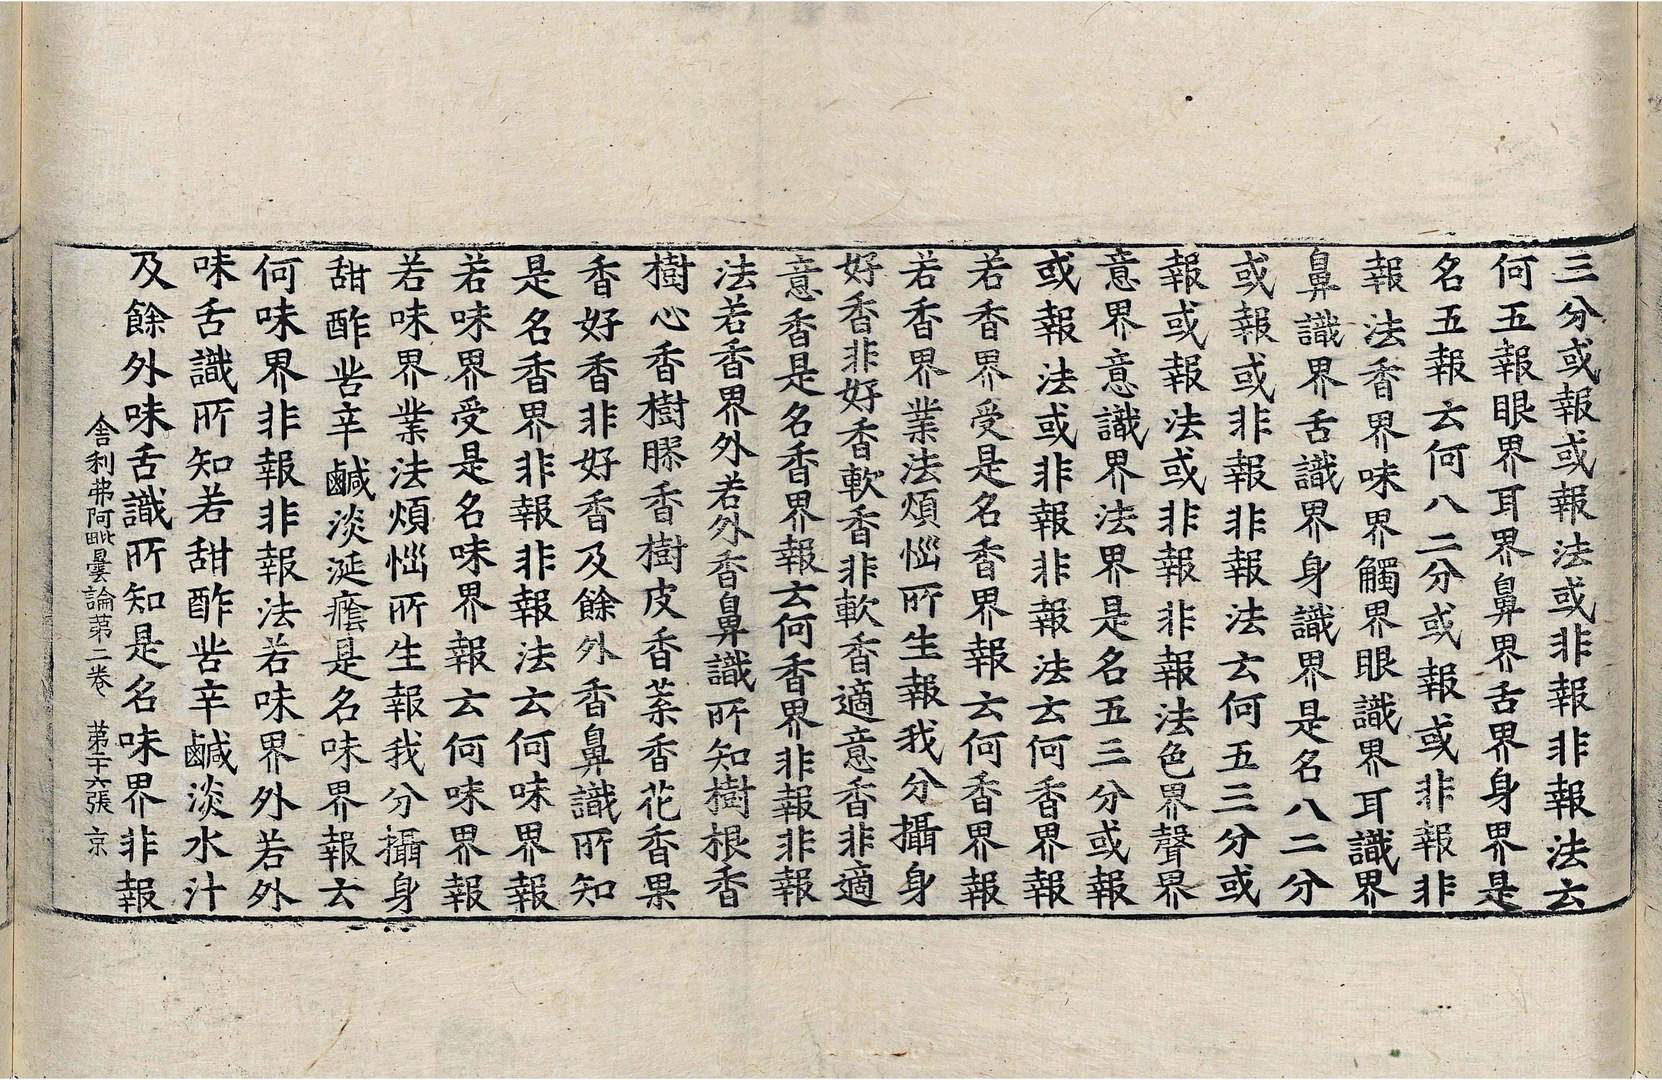 三分或報或報法或非報非報法云
何五報眼界耳界鼻界舌界身界是
名五報云何八二分或報或非報非
報法香界味界觸界眼識界耳識界
鼻識界舌識界身識界是名八二分
或報或非報非報法云何五三分或
報或報法或非報非報法色界聲界
意界意識界法界是名五三分或報
或報法或非報非報法云何香界報
若香界受是名香界報云何香界報
若香界業法煩惱所生報我分攝身
好香非好香軟香非軟香適意香非適
意香是名香界報云何香界非報非報
法若香界外若外香鼻識所知樹根香
樹心香樹膠香樹皮香葉香花香果
香好香非好香及餘外香鼻識所知
是名香界非報非報法云何味界報
若味界受是名味界報云何味界報
若味界業法煩惱所生報我分攝身
甜酢苦辛鹹淡涎癊是名味界報云
何味界非報非報法若味界外若外
味舌識所知若甜酢苦辛鹹淡水汁
及餘外味舌識所知是名味界非報
舍利弗阿毗曇論第二卷 第十六張 京